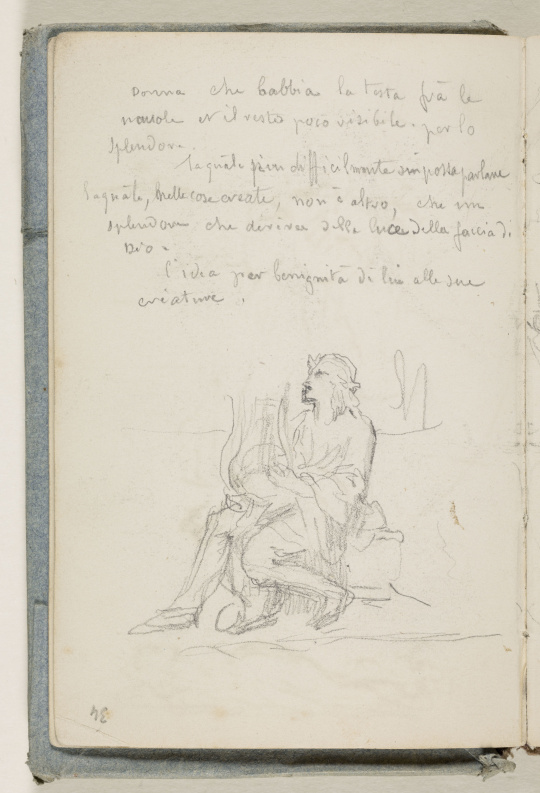 Donna che habbia la testa frà le
nuvole et il resto poco visibile per lo
splendore.
la quale più difficilmente si possa parlare
la quale, nelle cose create, non è altro, che un
splendore che deriva dalla luce della faccia di
Dio.
l'idea per benignità di lui alle sue
criature.
34